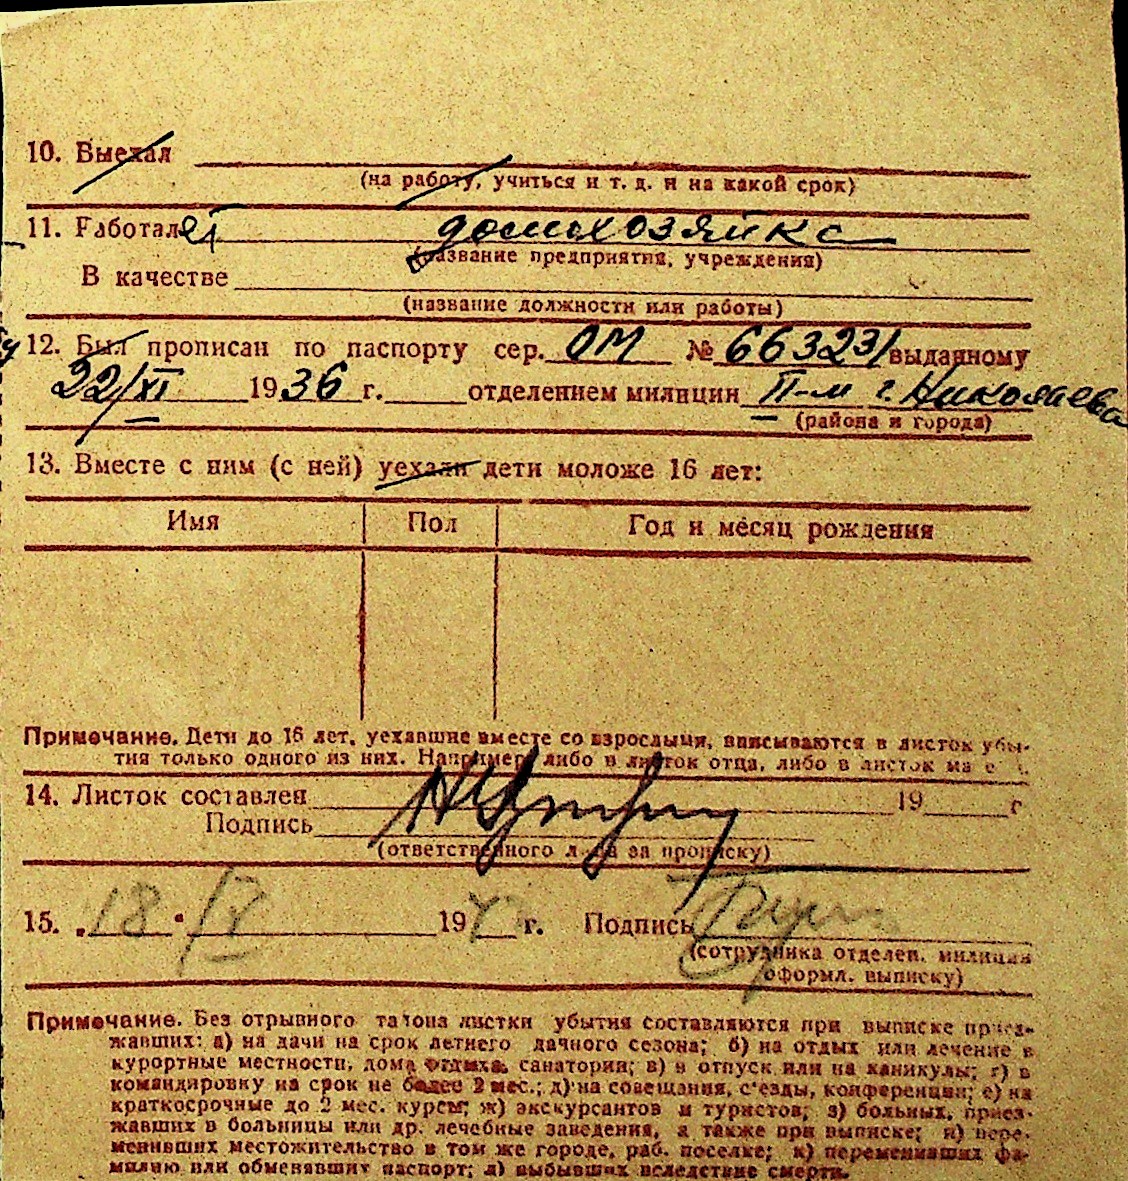 10. Выехал
(на работу, учиться и т. д. и на какой срок)
11. Работала домохозяйка
(название предприятия, учреждения)
В качестве
(название должности или работы)
12. Был прописан по паспорту сер. ОМ № 663231 выданному
22/XI 1936 г. отделением милиции II-м г. Николаева
(района и города)
13. Вместе с ним (с ней) уехали дети моложе 16 лет:
Имя Пол Год и месяц рождения
Примечание. Дети до 16 лет, уехавшие вместе со взрослыми, вписываются в листок убы-
тия только одного из них. Например, либо в листок отца, либо в листок
14. Листок составлен 19 г
Подпись
(ответственного лица за прописку)
15. „18" IV 194 г. Подпись
(сотрудника отделен. милиции
оформл. выписку)
Примечание. Без отрывного талона листки убытия составляются при выписке приез-
жавших: а) на дачи на срок летнего дачного сезона; б) на отдых или лечение в
курортные местности, дома отдыха, санатории; в) в отпуск или на каникулы; г) в
командировку на срок не более 2 мес.; д) на совещания, с'езды, конференции; е) на
краткосрочные до 2 мес. курсы; ж) экскурсантов и туристов; з) больных, приез-
жавших в больницы или др. лечебные заведения, а также при выписке; и) пере-
менивших местожительство в том же городе, раб. поселке; к) переменивших фа-
милию или обменявших паспорт; л) выбывших вследствие смерти.